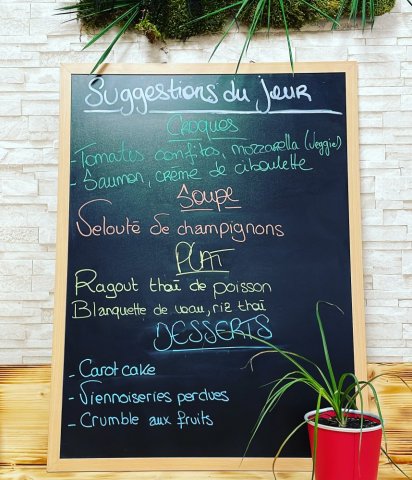 Suggestions du jour
Croques
- Tomates confites, mozzarella (Veggie)
- Saumon, crème de ciboulette
Soupe
Velouté de champignons
PLAT
Ragout thaï de poisson
Blanquette de veau, riz thaï
DESSERTS
- Carot cake
- Viennoiseries perdues
- Crumble aux fruits